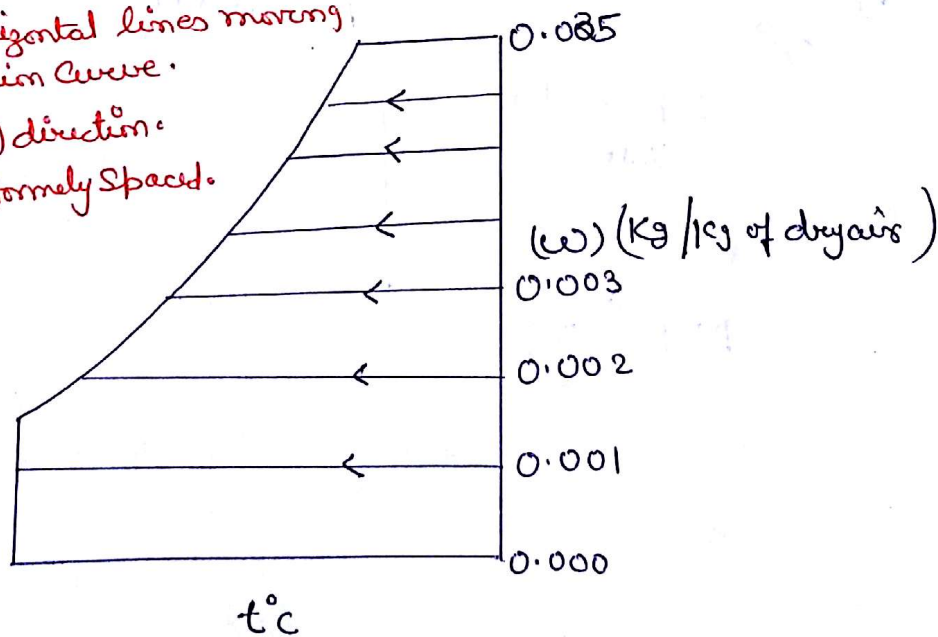 izontal lines moving
ion Curve.
) direction.
ormely Spaced.
0.025
(ω) (Kg/kg of dryair)
0.003
0.002
0.001
0.000
t°c